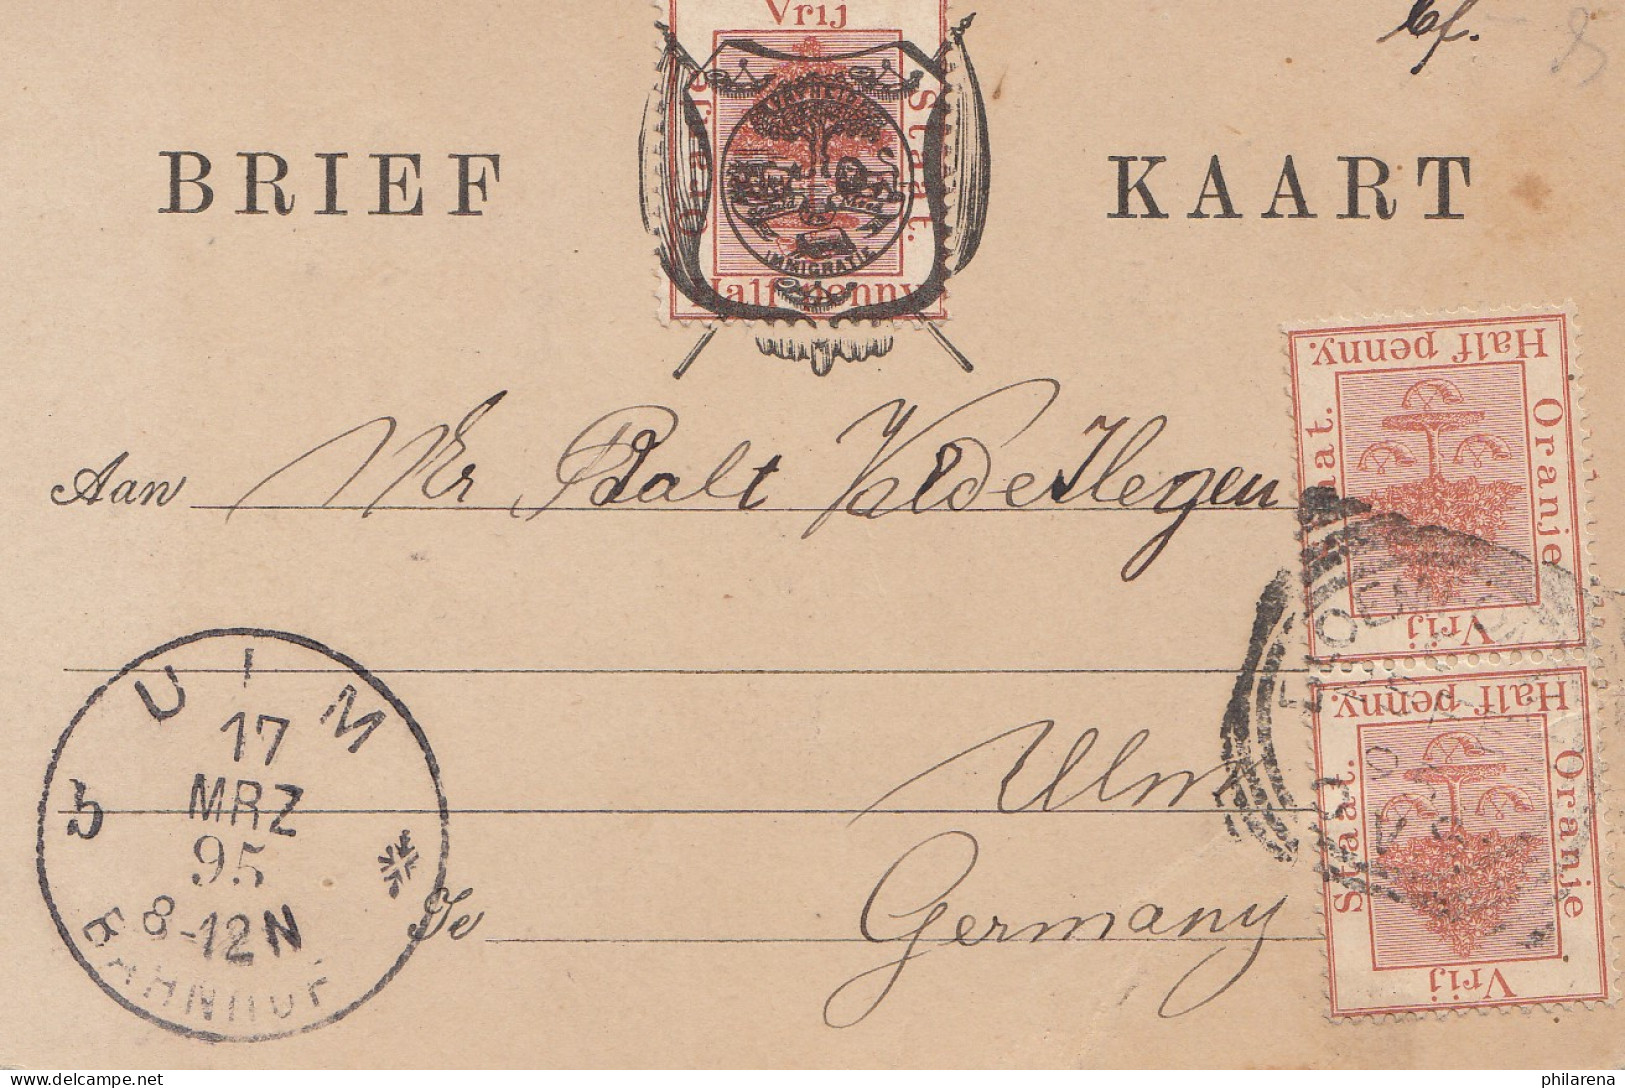 Vrij
Oranje Staat.
VRYHEID
IMMIGRATIE
Half penny.
BRIEF KAART
Aan Mr Balt
Ulm
Te Germany
ULM
17
MRZ
95
8-12N
BAHNHOF
Half penny.
Oranje
Staat.
Vrij
Half penny.
Oranje
Staat.
Vrij
philarena